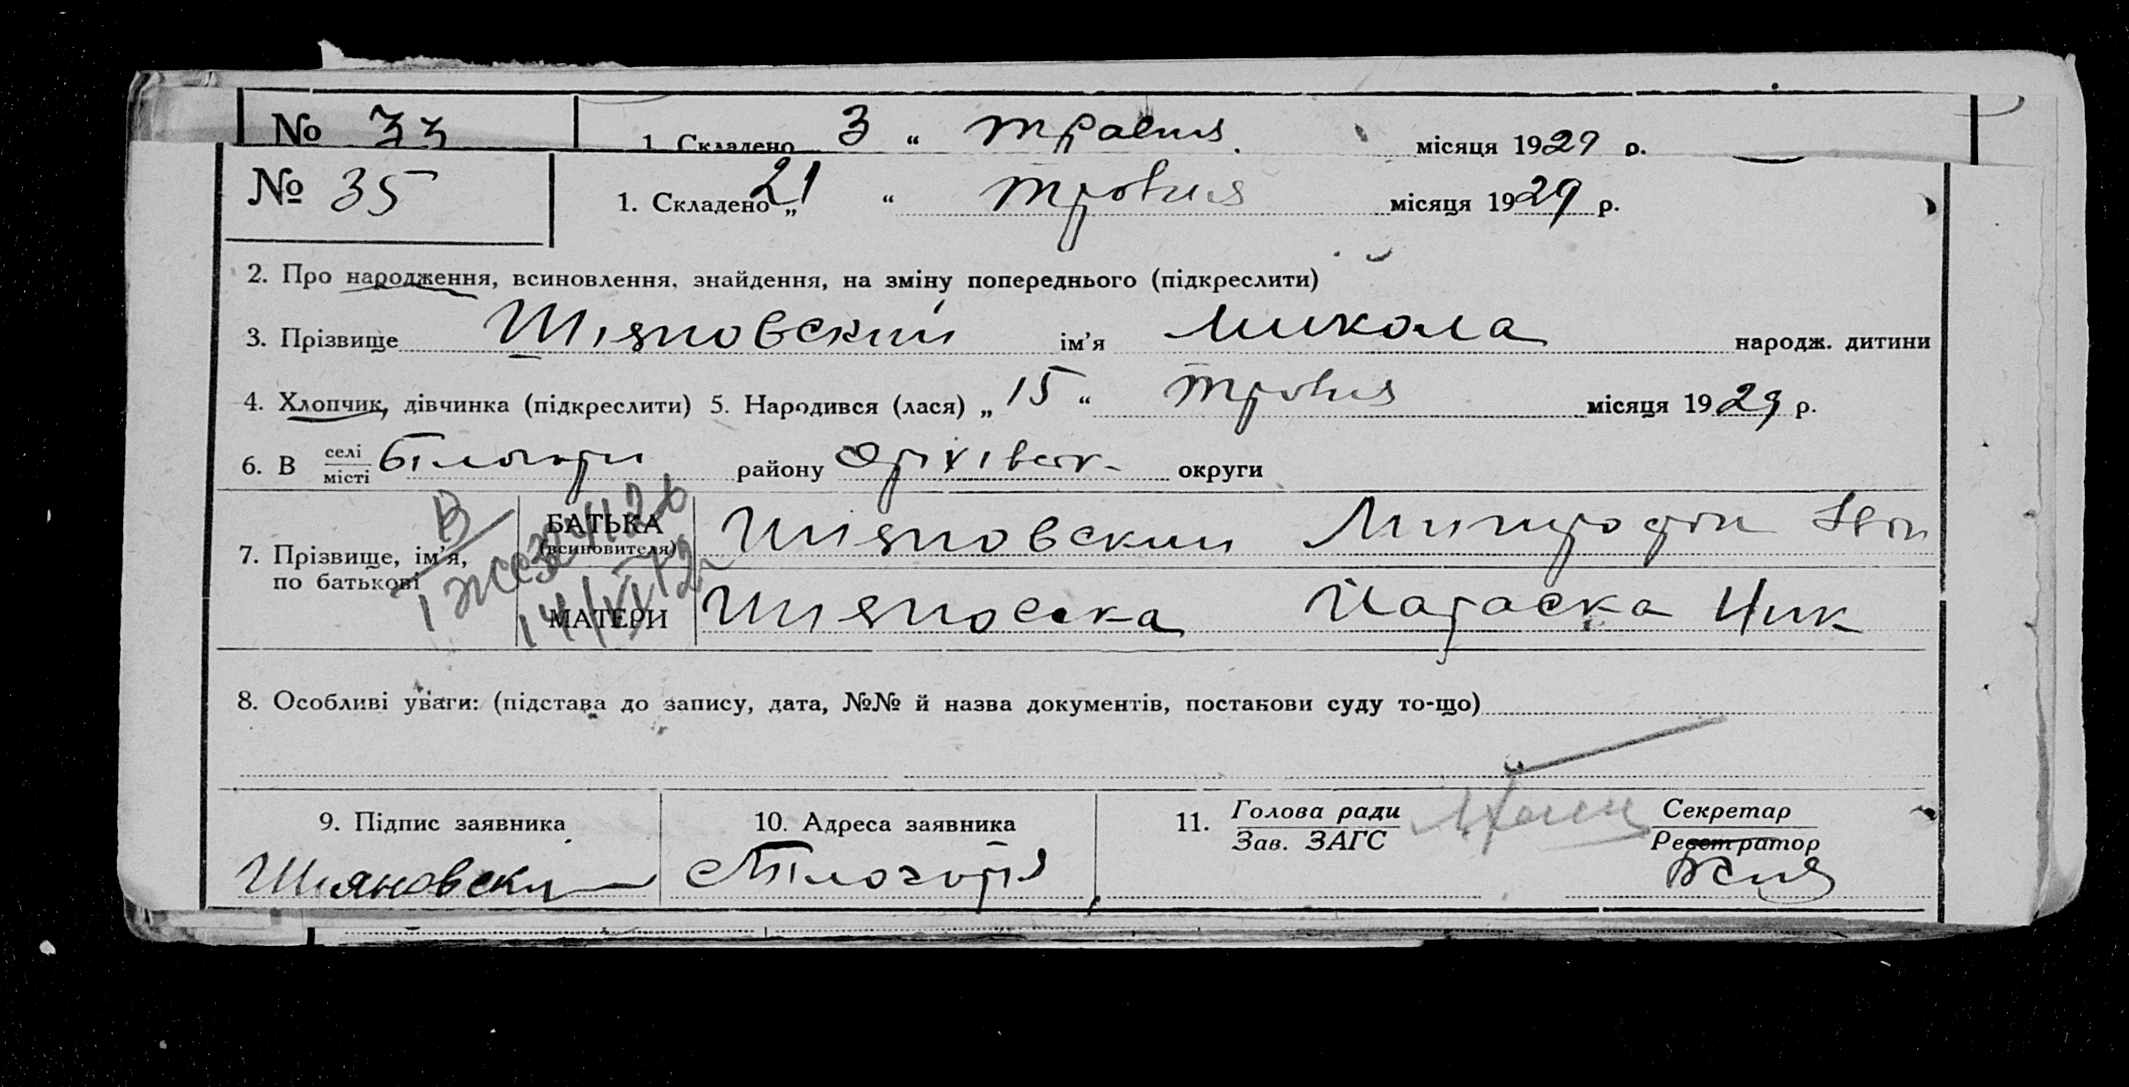 № 33 1. Складено 3 “ травня місяця 1929 р.
№ 35 1. Складено „ 21 “ травня місяця 1929 р.
2. Про народження, всиновлення, знайдення, на зміну попереднього (підкреслити)
3. Прізвище Шияновский ім’я Микола народж. дитини
4. Хлопчик, дівчинка (підкреслити) 5. Народився (лася) „ 15 “ травня місяця 1929 р.
6. В селі/місті Білогори району Оріхівск. округи
7. Прізвище, ім’я, по батькові
БАТЬКА (всиновителя) Шияновский Митрофан Іван
МАТЕРИ Шияновска Параска Ник
8. Особливі уваги: (підстава до запису, дата, №№ й назва документів, постанови суду то-що)
9. Підпис заявника 10. Адреса заявника 11. Голова ради Секретар
Зав. ЗАГС Реєстратор
Шияновски Білогорія